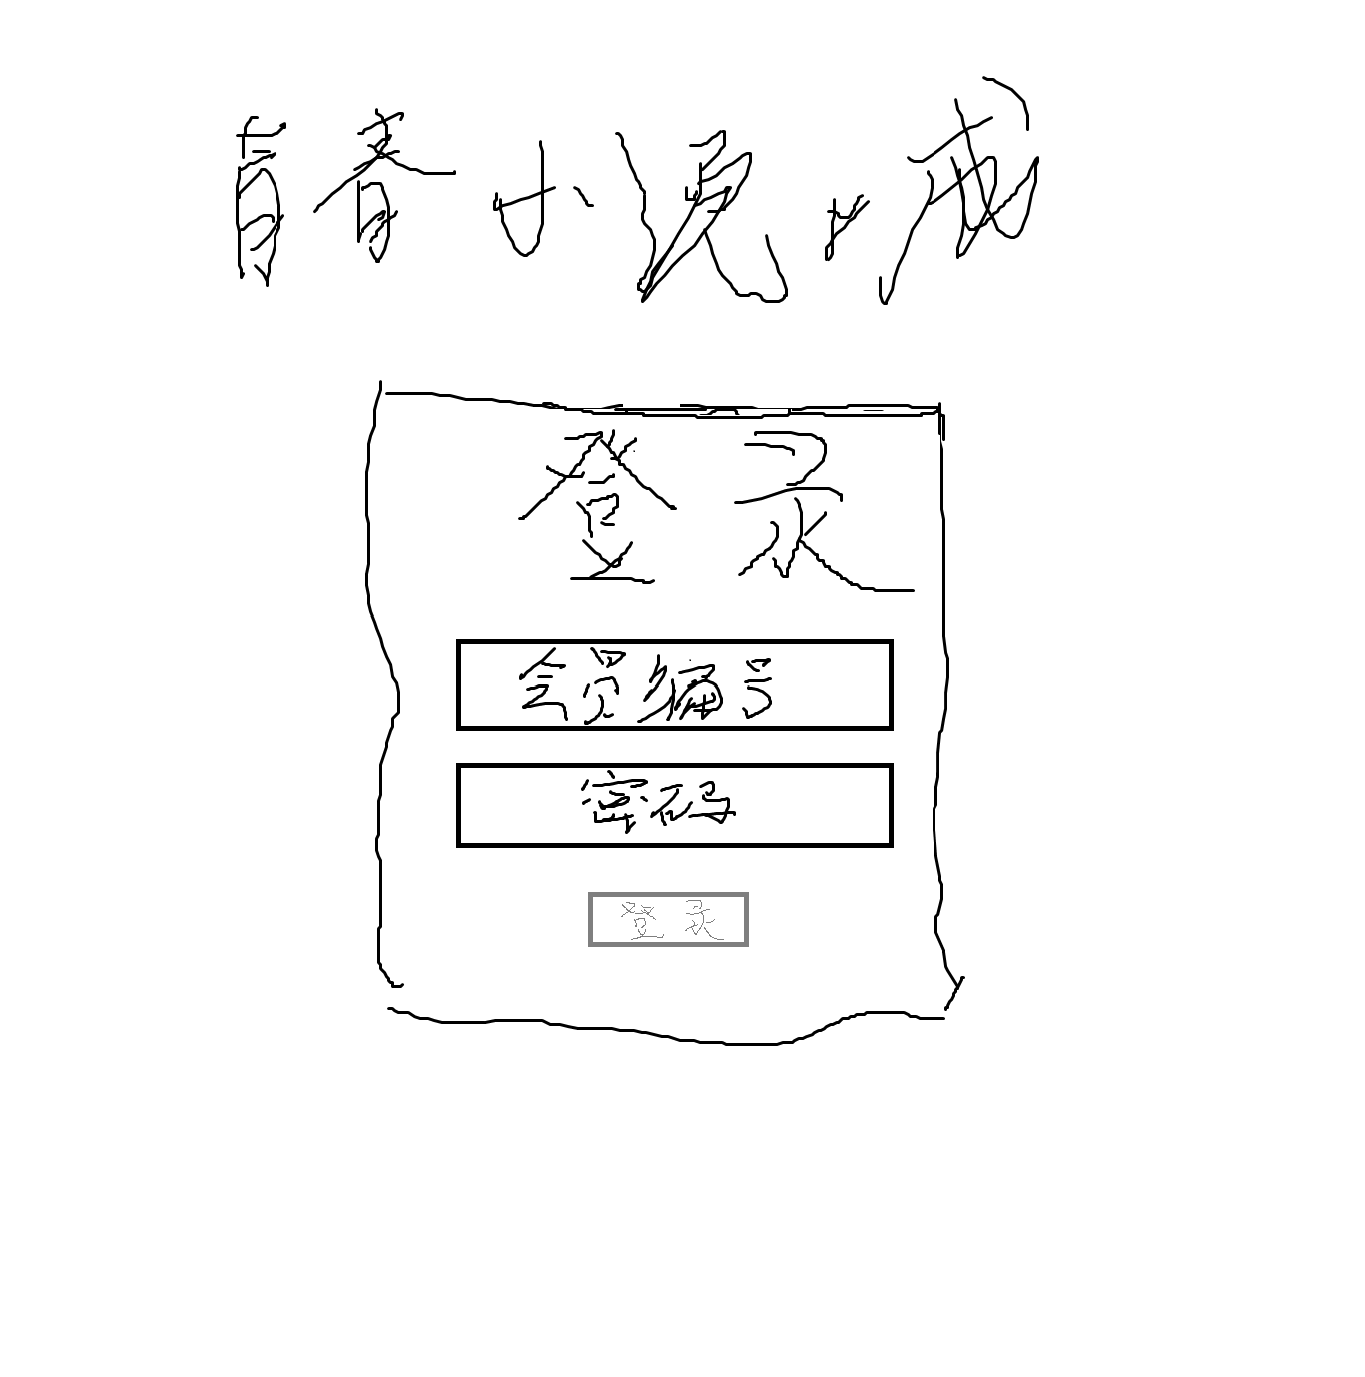 青春小说城
登录
会员编号
密码
登录